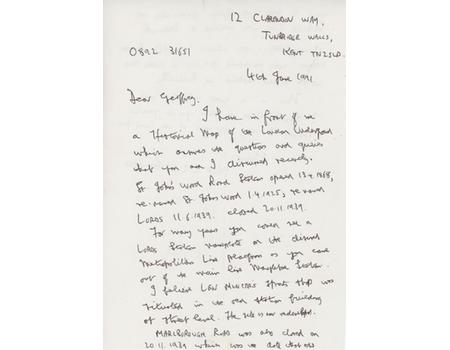 12 CLARENDON WAY,
TUNBRIDGE WELLS,
KENT TN2 5LD.
0892 31651
4th June 1991
Dear Geoffrey,
I have in front of me
a Historical Map of the London Underground
which answers the questions and queries
that you and I discussed recently.
St John's Wood Road Station opened 13.4.1868,
re-named St Johns Wood 1.4.1925, re-named
LORDS 11.6.1939. closed 20.11.1939.
For many years you could see a
LORDS Station nameplate on the disused
Metropolitan Line platform as you came
out of the main line Marylebone Station.
I believe LEN MUNCER'S Sports Shop was
situated in the old station building
at street level. The site is now redeveloped.
MARLBOROUGH ROAD was also closed on
20.11.1939 which was the date that